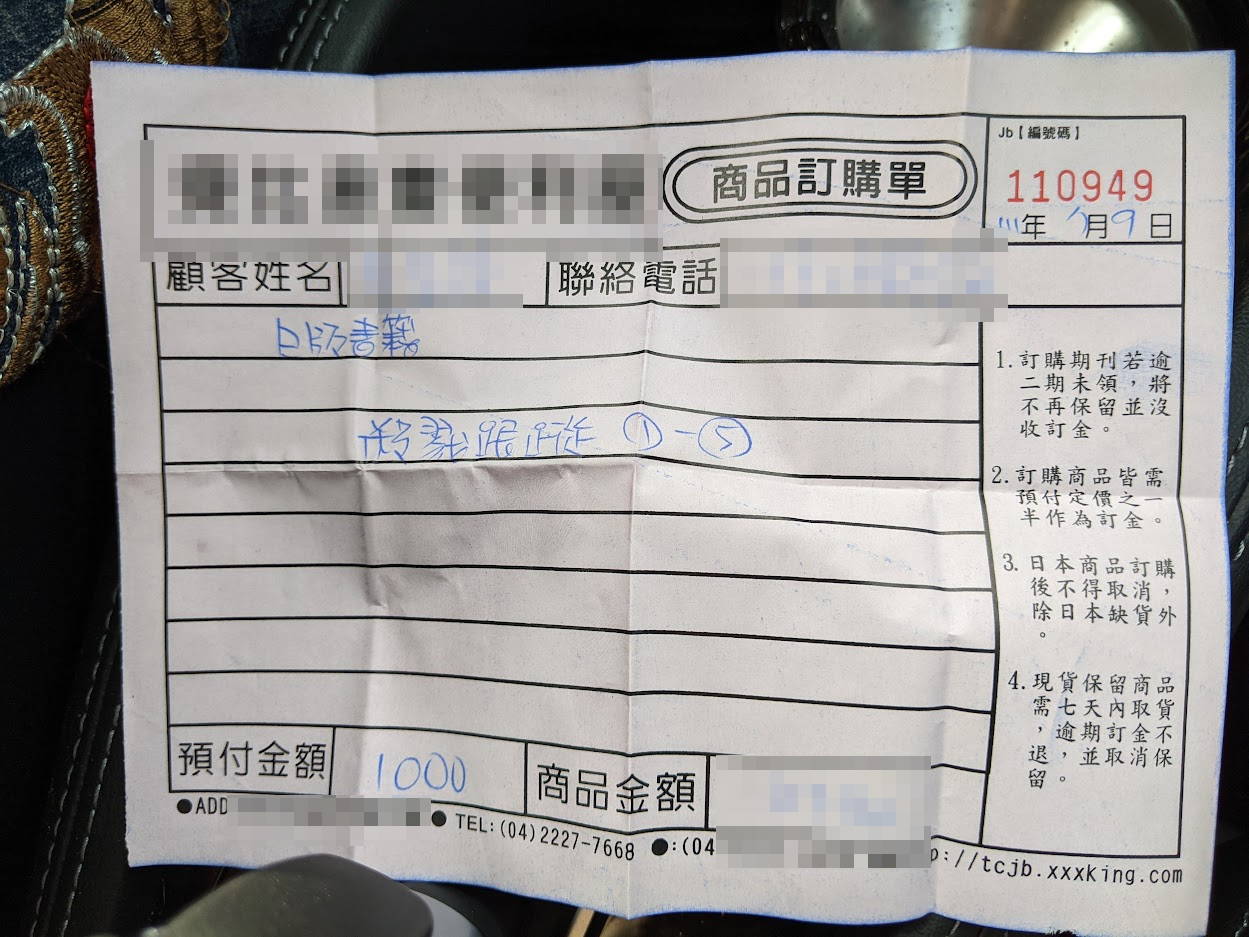 商品訂購單
Jb【編號碼】
110949
111年 7月9日
顧客姓名
聯絡電話
日版書籍
跟蹤 ①-⑤
1.訂購期刊若逾
二期未領，將
不再保留並沒
收訂金。
2.訂購商品皆需
預付定價之一
半作為訂金。
3.日本商品訂購
後不得取消，
除日本缺貨外
。
4.現貨保留商品
需七天內取貨
，逾期訂金不
退，並取消保
留。
預付金額
1000
商品金額
●ADD
●TEL:(04)2227-7668
●:(04
p://tcjb.xxxking.com